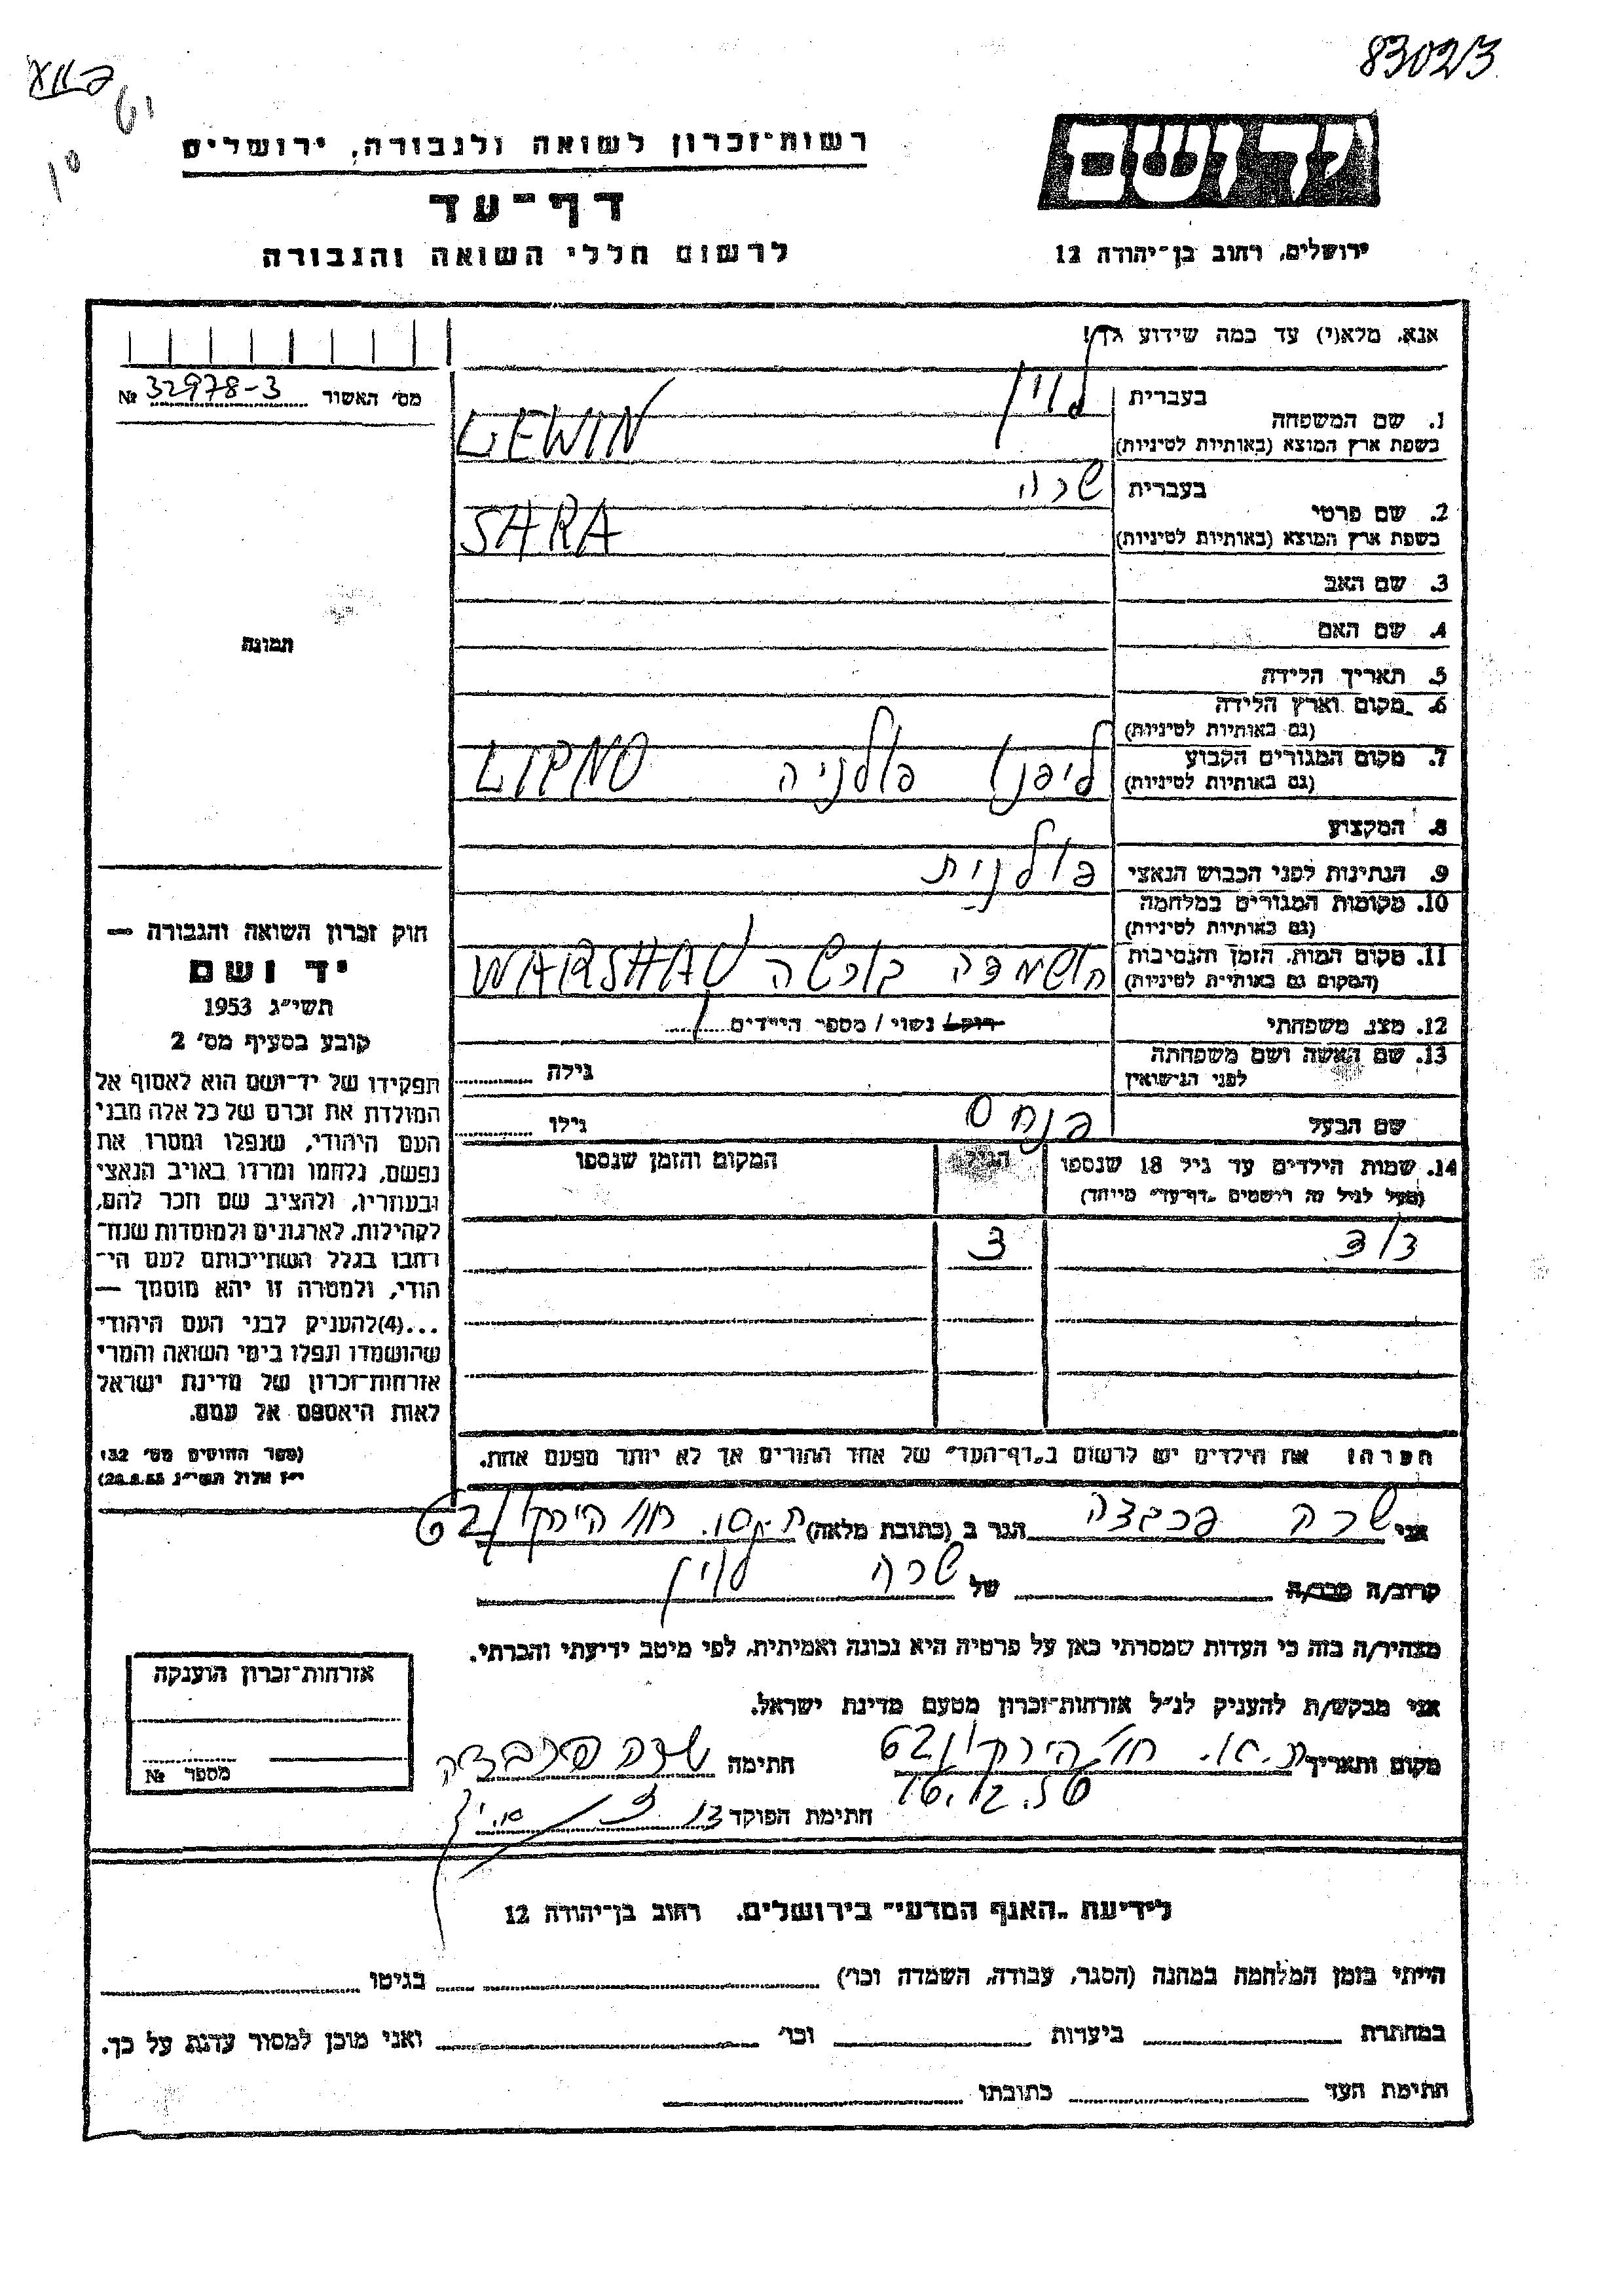 83023
יד ושם
רשות-זכרון לשואה ולגבורה, ירושלים
דף-עד
לרשום חללי השואה והגבורה
ירושלים, רחוב בן-יהודה 12
אנא, מלא(י) עד כמה שידוע לך!
מס' האשור № 32978-3
1. שם המשפחה
בעברית לוין
בשפת ארץ המוצא (באותיות לטיניות) LEWIN
2. שם פרטי
בעברית שרה
בשפת ארץ המוצא (באותיות לטיניות) SARA
3. שם האב
4. שם האם
5. תאריך הלידה
6. מקום וארץ הלידה
(גם באותיות לטיניות)
7. מקום המגורים הקבוע
(גם באותיות לטיניות) ליפנו פולניה LIPNO
8. המקצוע
9. הנתינות לפני הכבוש הנאצי פולנית
10. מקומות המגורים במלחמה
(גם באותיות לטיניות)
11. מקום המות, הזמן והנסיבות
(המקום גם באותיות לטיניות) הושמדה בורשה WARSHAU
12. מצב משפחתי רוק/ נשוי / מספר הילדים 1
13. שם האשה ושם משפחתה
לפני הנישואין גילה
שם הבעל פנחס גילו
14. שמות הילדים עד גיל 18 שנספו הגיל המקום והזמן שנספו
(מעל לגיל זה רושמים "דף-עד" מיוחד)
3
הערה: את הילדים יש לרשום ב"דף-העד" של אחד ההורים אך לא יותר מפעם אחת.
תמונה
חוק זכרון השואה והגבורה —
יד ושם
תשי"ג 1953
קובע בסעיף מס' 2
תפקידו של יד-ושם הוא לאסוף אל
המולדת את זכרם של כל אלה מבני
העם היהודי, שנפלו ומסרו את
נפשם, נלחמו ומרדו באויב הנאצי
ובעוזריו, ולהציב שם וזכר להם,
לקהילות, לארגונים ולמוסדות שנח-
רבו בגלל השתייכותם לעם הי-
הודי, ולמטרה זו יהא מוסמך —
...(4)להעניק לבני העם היהודי
שהושמדו ונפלו בימי השואה והמרי
אזרחות-זכרון של מדינת ישראל
לאות היאספם אל עמם.
(ספר החוקים מס' 132
י"ז אלול תשי"ג 28.8.53)
אני שרה הגר ב (כתובת מלאה) רח' הירקון 62
קרוב/ה מכר/ה של שרה לוין
מצהיר/ה בזה כי העדות שמסרתי כאן על פרטיה היא נכונה ואמיתית, לפי מיטב ידיעתי והכרתי.
אני מבקש/ת להעניק לנ"ל אזרחות-זכרון מטעם מדינת ישראל.
מקום ותאריך ת.א. רח' הירקון 62 חתימה שרה
16.12.56
חתימת הפוקד
אזרחות-זכרון הוענקה
מספר №
לידיעת "האגף המדעי" בירושלים, רחוב בן-יהודה 12
הייתי בזמן המלחמה במחנה (הסגר, עבודה, השמדה וכו') בגיטו
במחתרת ביערות וכו' ואני מוכן למסור עדות על כך.
חתימת העד כתובתו